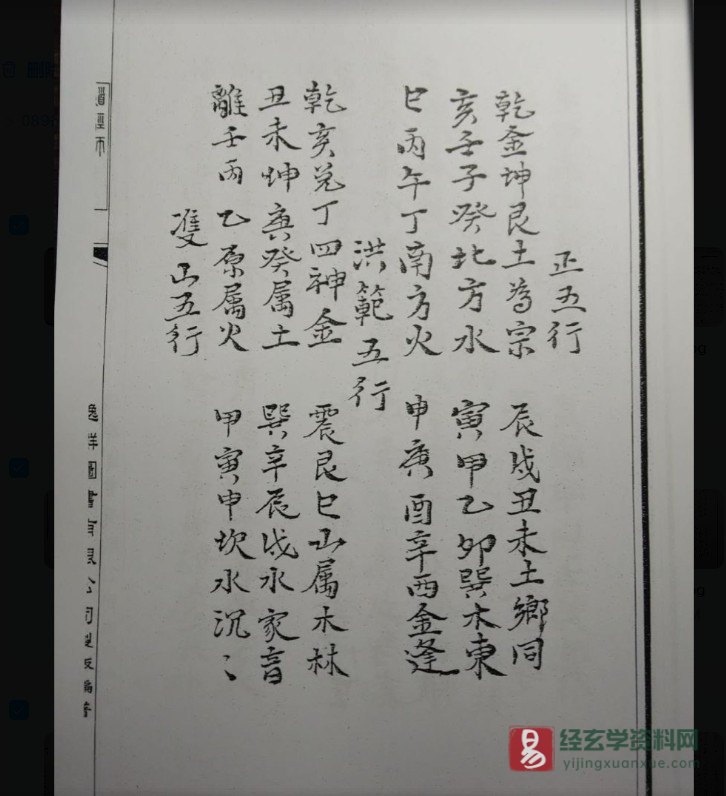 正五行
乾金坤艮土為宗 辰戌丑未土鄉同
亥壬子癸北方水 寅甲乙卯巽木東
巳丙午丁南方火 申庚酉辛西金逢
洪範五行
乾亥兌丁四神金 震艮巳山属木林
丑未坤庚癸属土 巽辛辰戌水家音
離壬丙乙原属火 甲寅申坎水沉〻
雙山五行
逸群圖書有限公司製版編著
易
经玄学资料网
yijingxuanxue.com